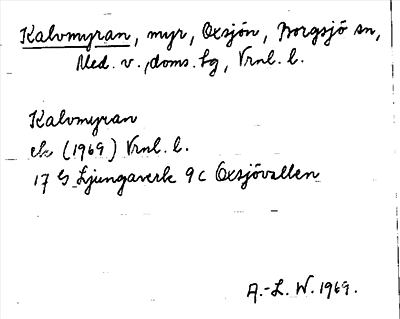 Kalvmyran, myr, Oxsjön, Borgsjö sn,
Med. v., doms. lg, Vrnl. l.
Kalvmyran
ek (1969) Vrnl. l.
17 G Ljungaverk 9 c Oxsjövallen
A.-L. W. 1969.